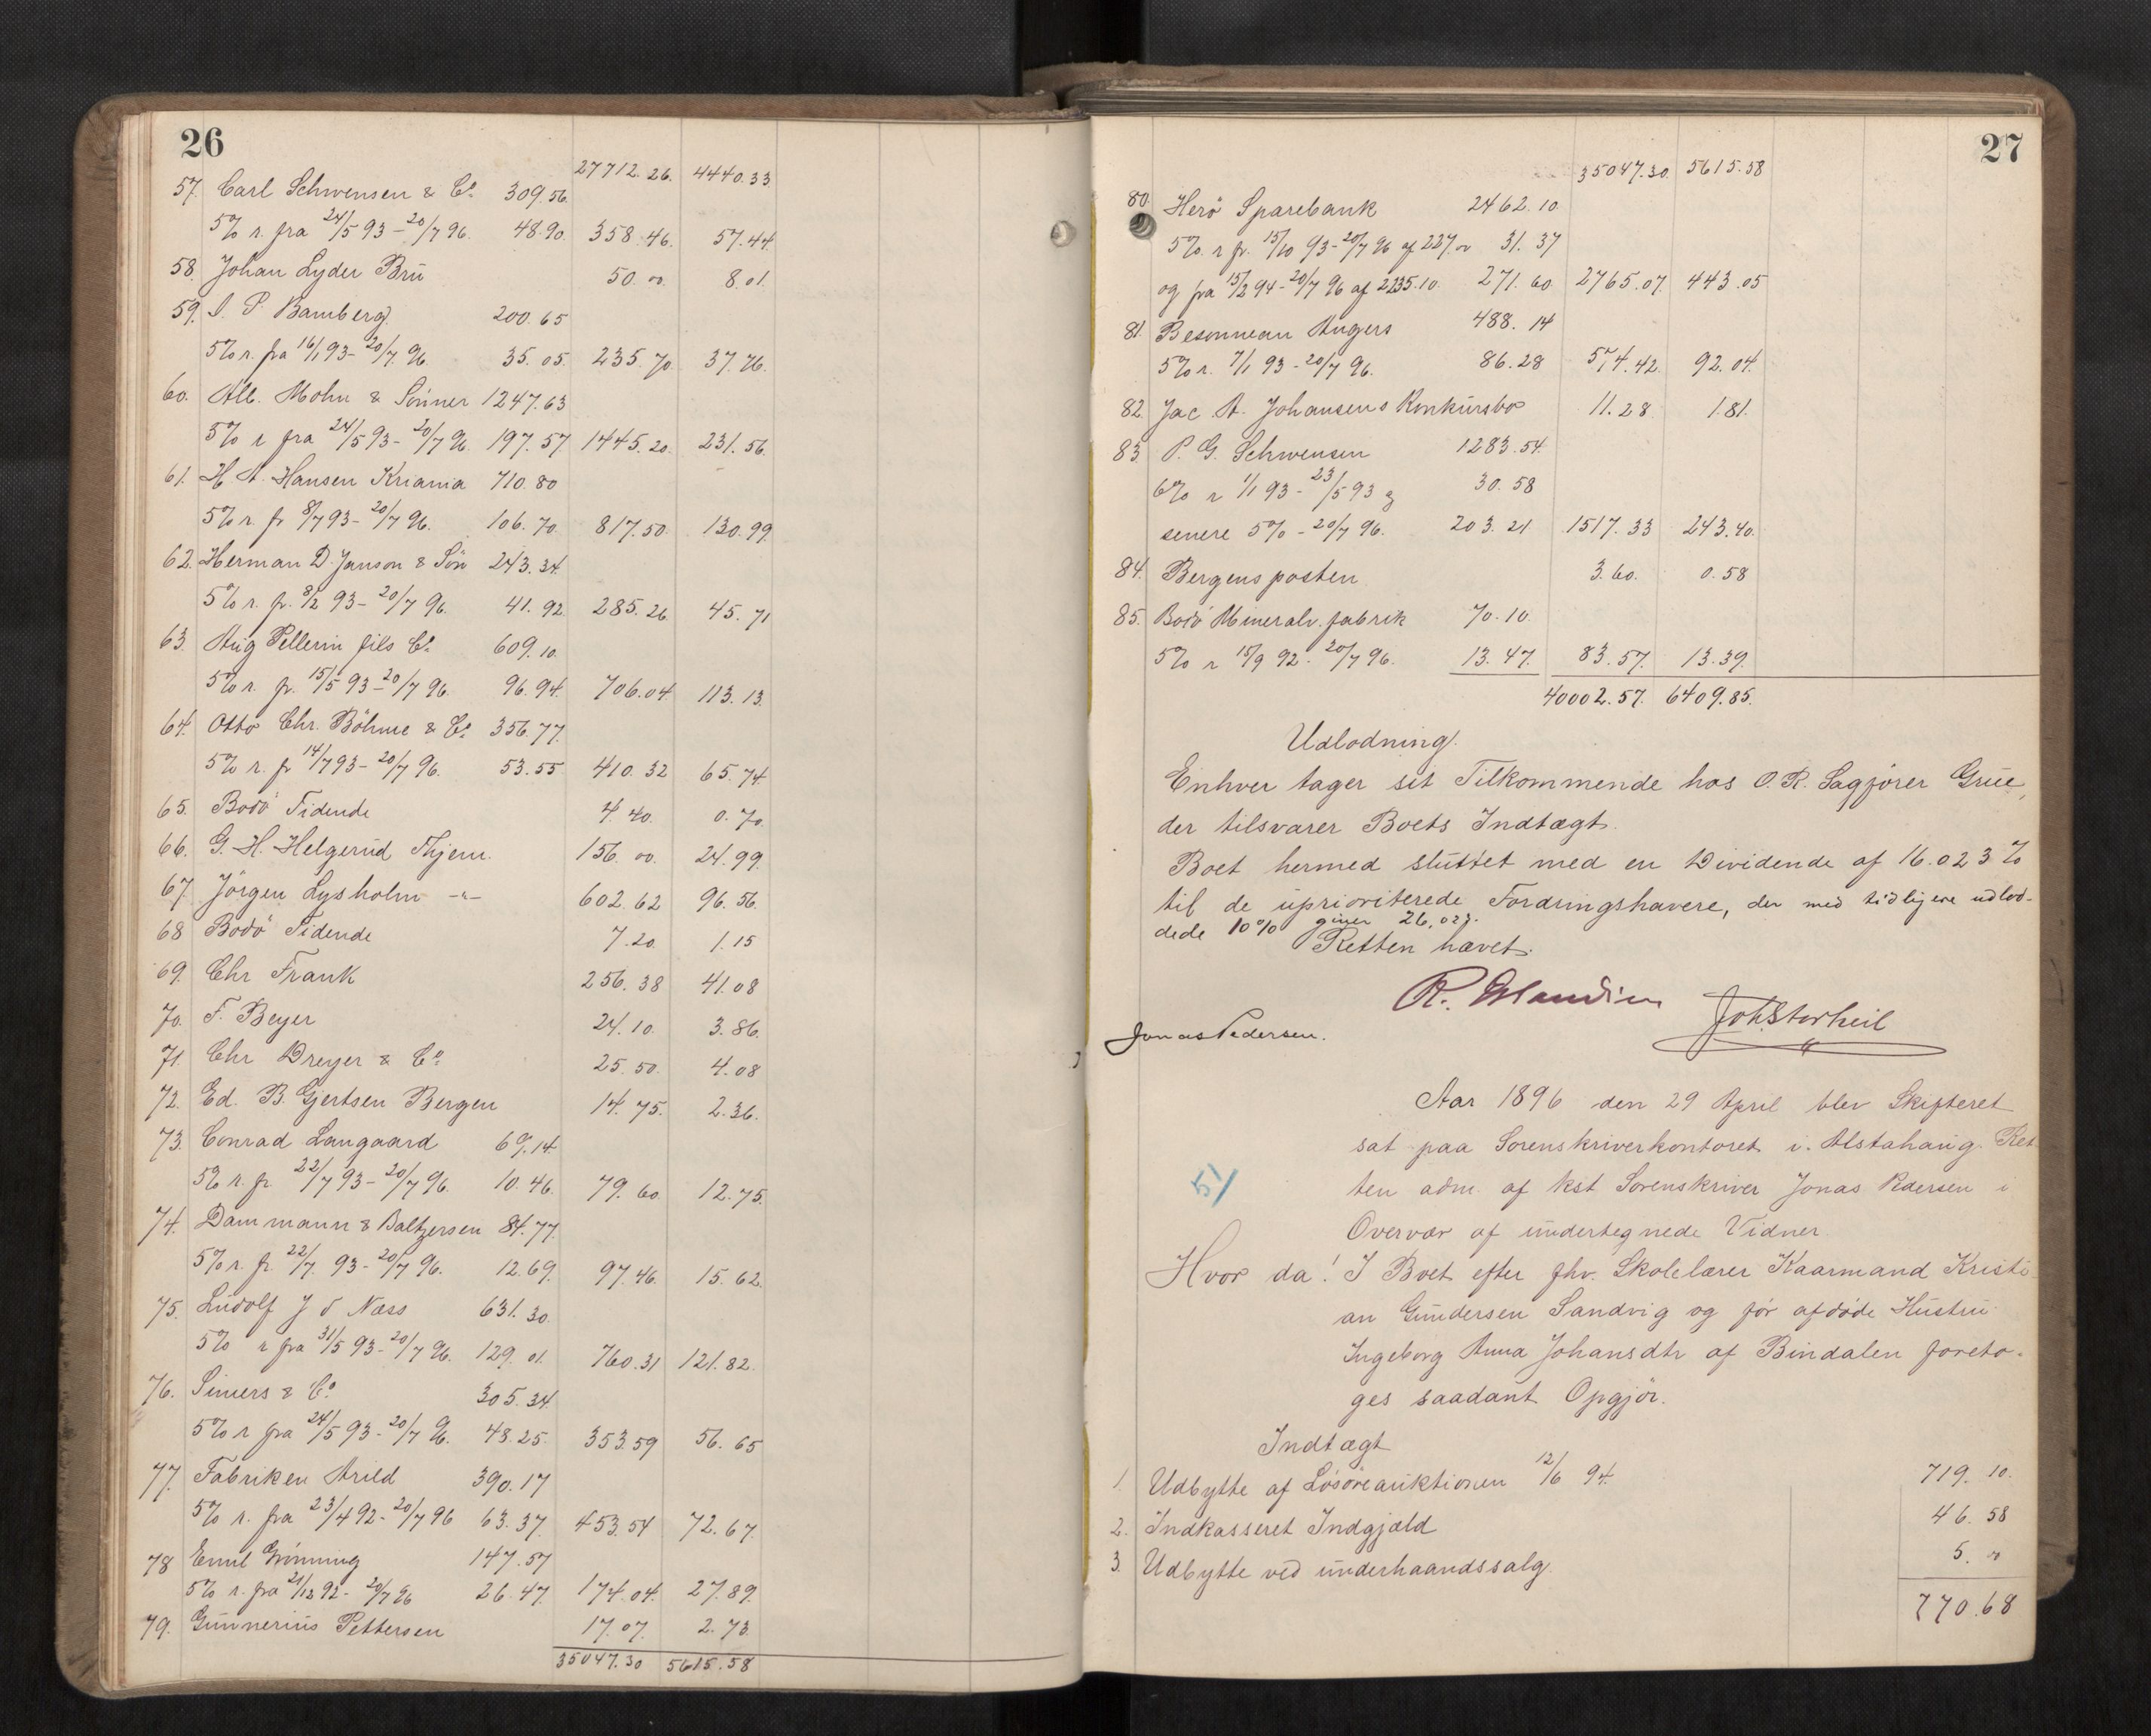 26
27712.26. 4440.33
57. Carl Schwensen & Co. 309.56.
5% r. fra 24/5 93 - 20/7 96. 48.90. 358.46. 57.44.
58. Johan Lyder Brü 50.00. 8.01.
59. P. Bamberg 200.65
5% r. fra 16/1 93 - 20/7. 96. 35.05. 235.70. 37.76.
60. Alb. Mohn & Sönner 1247.63
5% r fra 24/5 93 - 20/7 96. 197.57. 1445.20. 231.56.
61. H. A. Hansen Kriania 710.80
5% r. fr 8/7 93 - 20/7 96. 106.70. 817.50. 130.99.
62. Herman D. Janson & Sön 243.34.
5% r. fr. 8/2 93 - 20/7 96. 41.92. 285.26. 45.71
63. Aug Pellerin fils Co. 609.10.
5% r. fr. 15/5 93 - 20/7 96. 96.94. 706.04. 113.13.
64. Otto Chr. Böhme & Co. 356.77.
5% r. fr 14/7 93 - 20/7 96. 53.55. 410.32 65.74.
65. Bodö Tidende 4.40. 0.70.
66. G. H. Helgerud Thjem. 156.00. 24.99.
67. Jörgen Lysholm -"- 602.62 96.56.
68 Bodö Tidende 7.20. 1.15
69. Chr Frank 256.38 41.08
70. F. Beyer 24.10. 3.86.
71. Chr Dreyer & Co. 25.50. 4.08
72. Ed. B. Gjertsen Bergen 14.75. 2.36.
73. Conrad Langaard 69.14.
5% r. fr. 22/7 93 - 20/7 96. 10.46. 79.60. 12.75.
74. Dammann & Baltzersen 84.77.
5% r. fr. 22/7. 93 - 20/7 96. 12.69. 97.46. 15.62.
75. Ludolf J d Næss 631.30.
5% r fra 31/5 93 - 20/7 96. 129.01. 760.31 121.82.
76. Simers & Co. 305.34.
5% r fra 24/5 93 - 20/7 96. 48.25. 353.59 56.65
77. Fabriken Arild 390.17
5% r. fra 23/4 92 - 20/7 96 63.37. 453.54 72.67.
78 Emil Grönning 147.57
5% r. fra 21/12 92 - 20/7 96 26.47. 174.04. 27.89.
79. Gunnerius Pettersen 17.07. 2.73.
35047.30 5615.58
27
35047.30. 5615.58
80. Herö Sparebank 2462.10
5% r fr. 15/10 93 - 20/7 96 af 227.00 31.37
og fra 15/2 94 - 20/7 96 af 2235.10. 271.60. 2765.07. 443.05
81. Besonneau Angers 488.14
5% r. 7/1 93 - 20/7 96. 86.28 574.42. 92.04.
82. Jac. A. Johansens Konkursbo 11.28. 1.81.
83. P. G. Schwensen 1283.54.
6% r 1/1 93 - 23/5 93 og 30.58
senere 5% - 20/7 96. 203.21 1517.33 243.40.
84. Bergensposten 3.60. 0.58
85. Bodö Mineralv. fabrik 70.10.
5% r 15/9 92 - 20/7 96. 13.47. 83.57. 13.39.
40002.57. 6409.85.
Udlodning.
Enhver tager sit Tilkommende hos O. R. Sagförer Grue,
der tilsvarer Boets Indtægt.
Boet hermed sluttet med en Dividende af 16.023%
til de uprioriterede Fordringshavere, der med tidligere udlod-
dede 10% giver 26,023.
Retten hævet.
Joh. Storheil
Jonas Pedersen.
Aar 1896 den 29 April blev Skifteret
sat paa Sorenskriverkontoret i Alstahaug. Ret
51
ten adm. af kst Sorenskriver Jonas Pedersen i
Overvær af undertegnede Vidner
Hvor da! I Boet efter fhv. Skolelærer Kaarmand Kristi-
an Gundersen Sandvig og för afdöde Hustru
Ingeborg Anna Johansdtr af Bindalen foreto-
ges saadant Opgjör.
Indtægt
1. Udbytte af Lösöreauktionen 12/6 94. 719.10.
2. Indkasseret Indgjæld 46.58
3. Udbytte ved underhaandssalg. 5.00
770.68